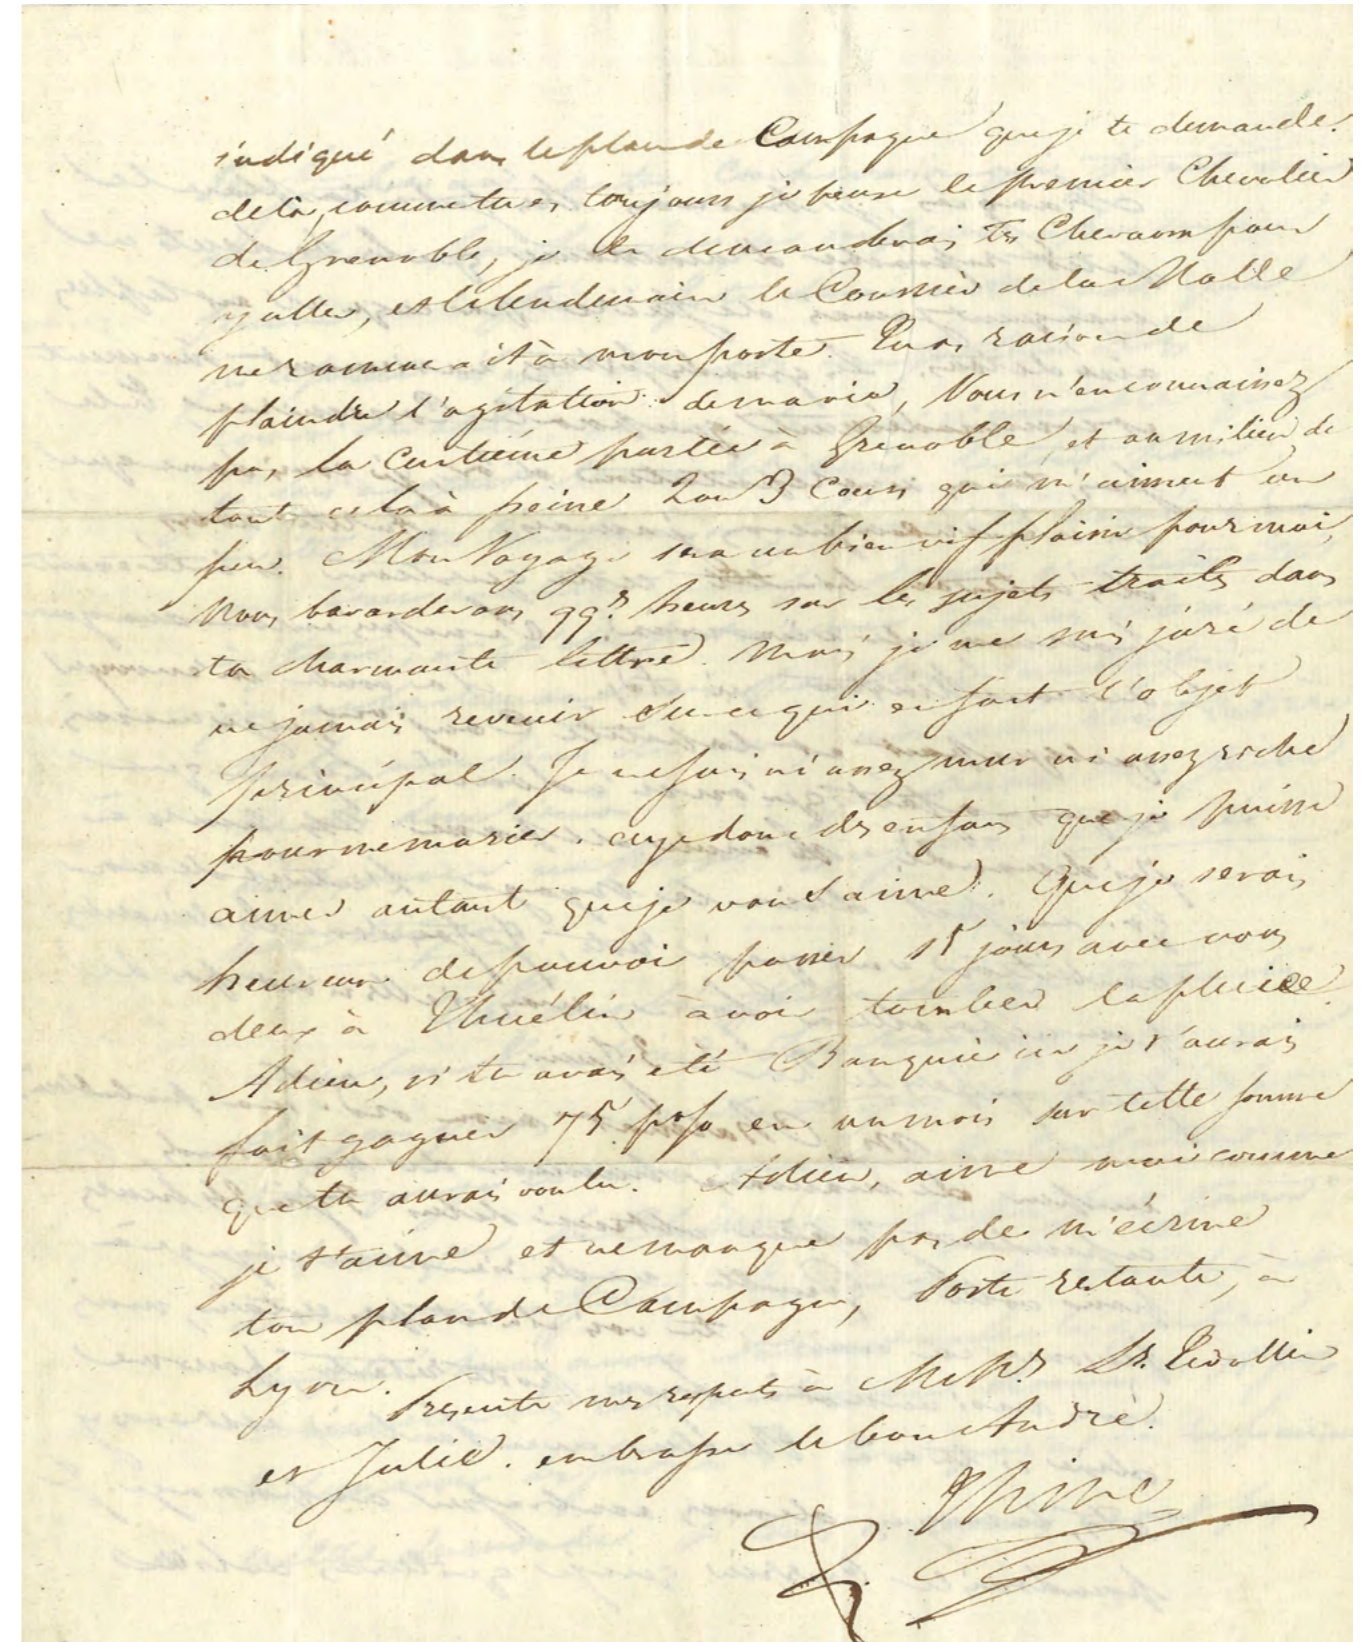 indiqué dans le plan de Campagne que je te demande.
delà, comme tu es toujours je pense le premier Chevalier
de Grenoble, je te demanderai tes Chevaux pour
y aller, et le lendemain le Courrier de la Malle
me ramenerait à mon poste. Tu as raison de
plaindre l'agitation de ma vie, Vous n'en connaissez
pas la Centième partie à Grenoble, et au milieu de
tout cela à peine 2 ou 3 Coeurs qui m'aiment un
peu. Mon Voyage sera un bien vif plaisir pour moi,
Nous bavarderons qqs. heures sur les sujets traités dans
ta charmante lettre. Mais je me suis juré de
ne jamais revenir sur ce qui en fait l'objet
principal. Je ne suis ni assez mur ni assez riche
pour me marier. aye donc des enfans que je puisse
aimer autant que je vous aime. Que je serais
heureux de pouvoir passer 15 jours avec vous
deux à à voir tomber la pluie.
Adieu, si tu avais été Banquier je t'aurais
fait gagner 75 p% en un mois sur telle somme
que tu aurais voulu. Adieu, aime moi comme
je t'aime et ne manque pas de m'écrire
ton plan de Campagne, Poste restante, à
Lyon.
Presente mes respects à
et Julie. embrasse le bon André.